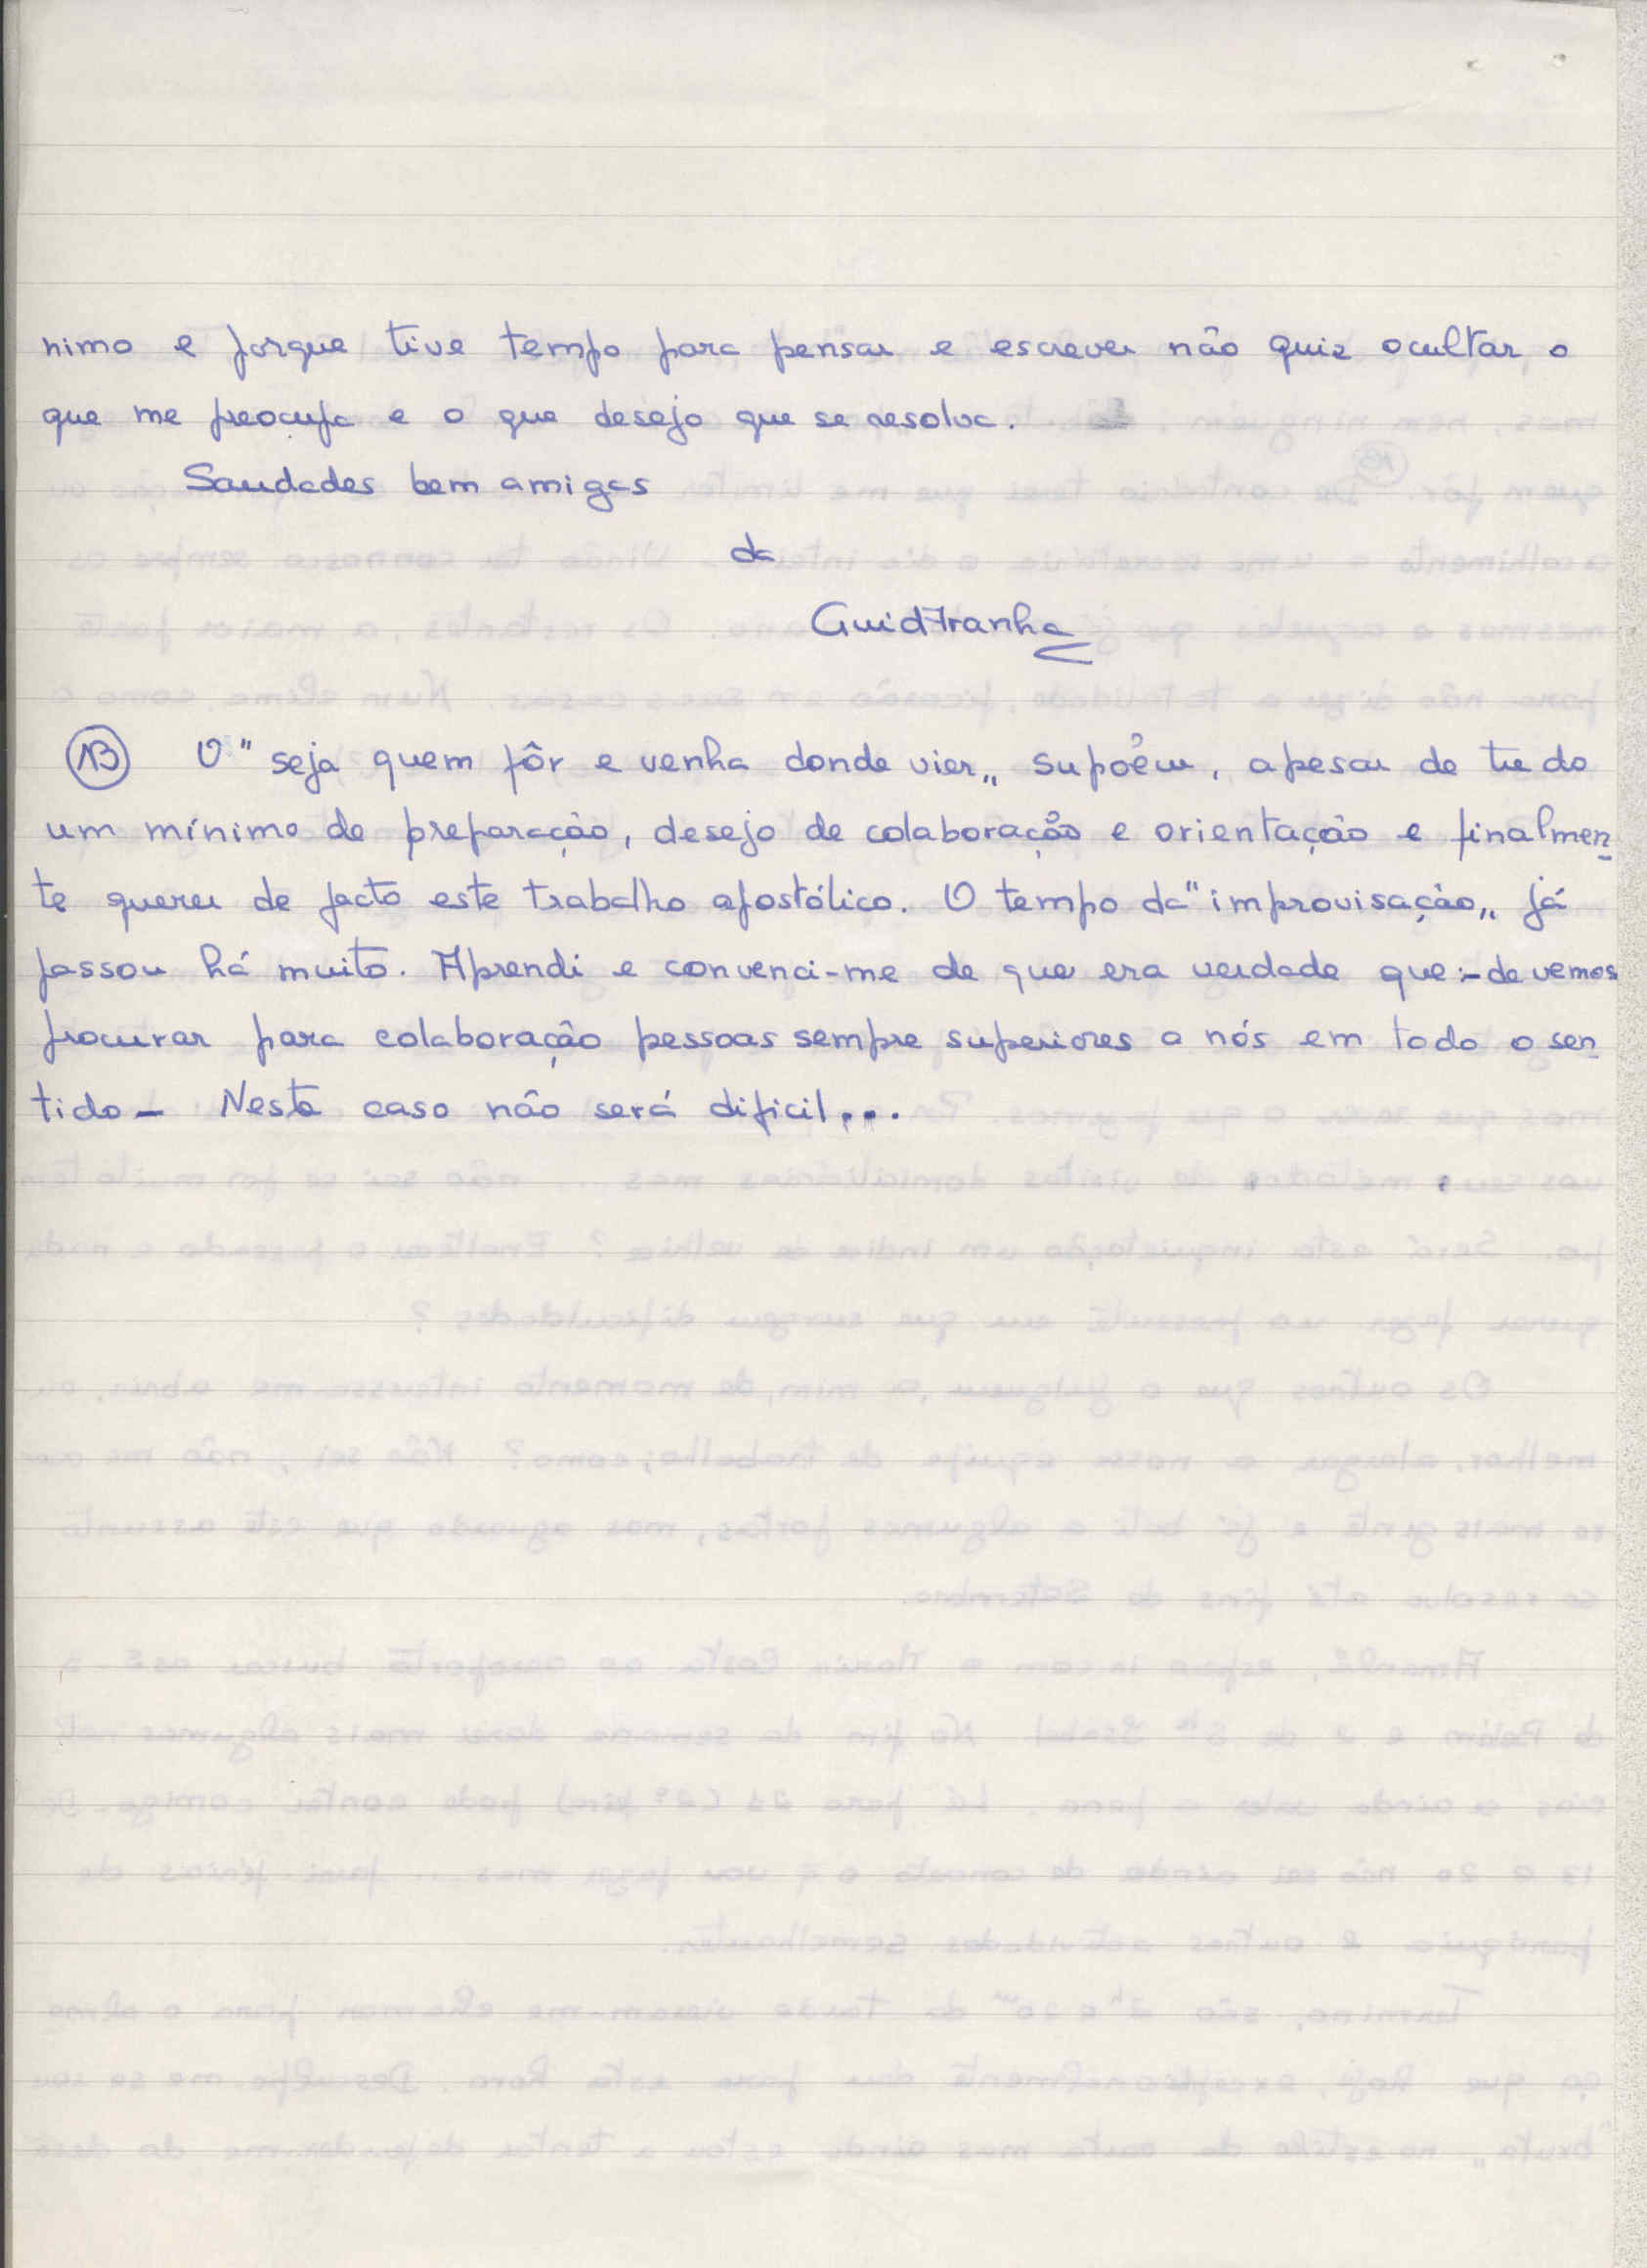 nimo e porque tive tempo para pensar e escrever não quiz ocultar o
que me preocupa e o que desejo que se resolva.
Saudades bem amigas
da
GuidAranha
NB O "seja quem fôr e venha donde vier„ supoêm, apesar de tudo
um mínimo de preparação, desejo de colaboração e orientação e finalmen-
te querer de facto este trabalho apostólico. O tempo da "improvisação„ já
passou há muito. Aprendi e convenci-me de que era verdade que:-devemos
procurar para colaboração pessoas sempre superiores a nós em todo o sen-
tido- Neste caso não será dificil...